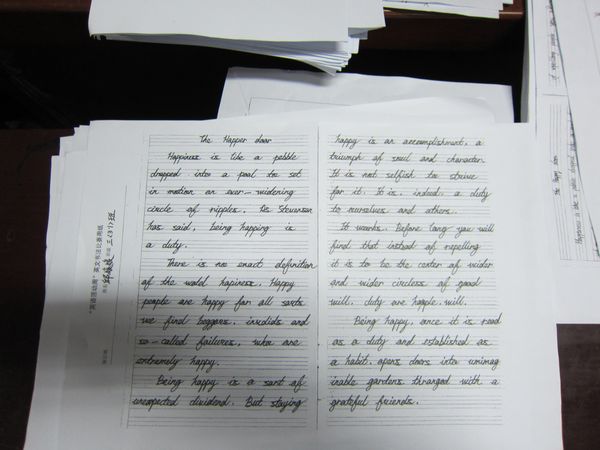 The Happer door
Happiness is like a pebble
dropped into a pool to set
in motion an ever-widening
circle of ripples. As Stevenson
has said, being happing is
a duty.
There is no exact definition
of the world hapiness. Happy
people are happy for all sorts
we find beggars, invdids and
so-called failures, who are
extremely happy.
Being happy is a sort of
unexpected dividend. But staying
happy is an accomplishment, a
triumph of soul and character
It is not selfish to strive
for it. It is, indeed, a duty
to ourselves and others.
It works. Before long you will
find that instead of repelling
it is to be the center of wider
and wider circless of good
will. duty are happle will.
Being happy, once it is read
as a duty and established as
a habit. opens doors into unimag
inable gardens thranged with a
grateful friends.
"英语活动周"英文书法比赛用纸
班级 三(31)班
The Happy door